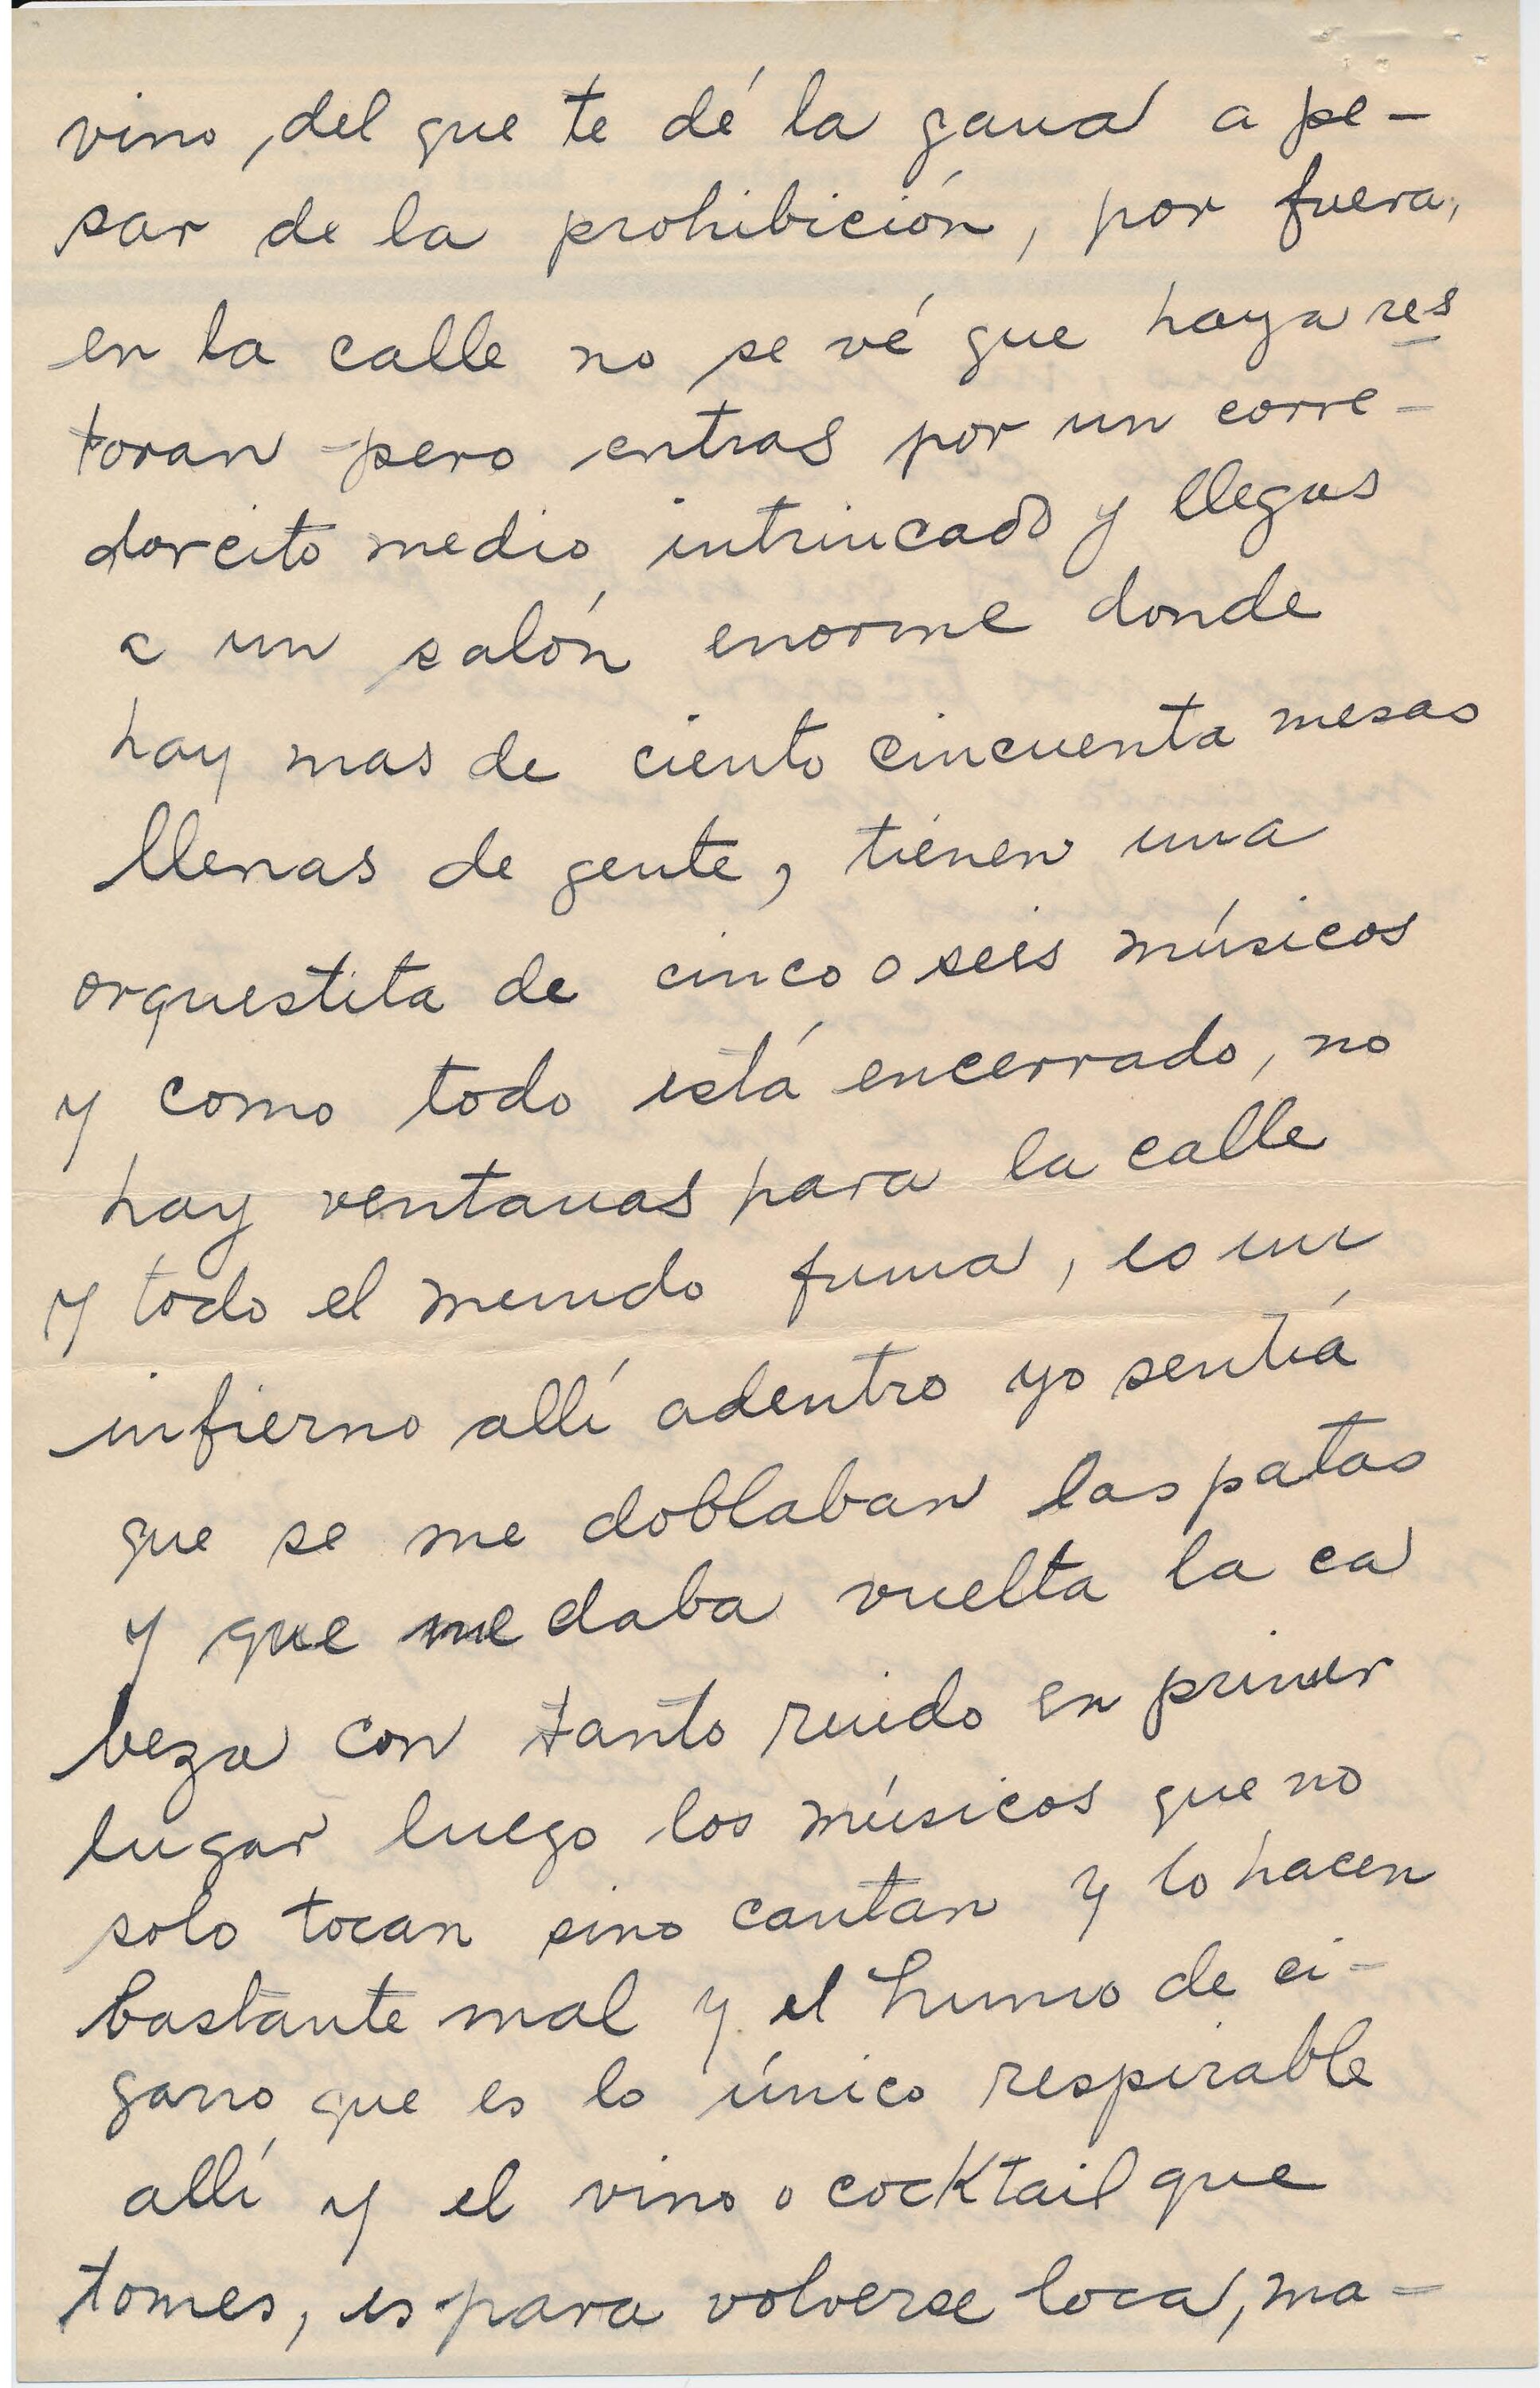 vino, del que te dé la gana a pe-
sar de la prohibición, por fuera,
en la calle no se vé que haya res
toran pero entras por un corre-
dorcito medio intrincado y llegas
a un salón enorme donde
hay mas de ciento cincuenta mesas
llenas de gente, tienen una
orquestita de cinco o seis músicos
y como todo está encerrado, no
hay ventanas para la calle
y todo el mundo fuma, es un
infierno allí adentro yo sentía
que se me doblaban las patas
y que me daba vuelta la ca
beza con tanto ruido en primer
lugar luego los músicos que no
solo tocan sino cantan y lo hacen
bastante mal y el humo de ci-
garro que es lo único respirable
allí y el vino o cocktail que
tomes, es para volverse loca, ma-